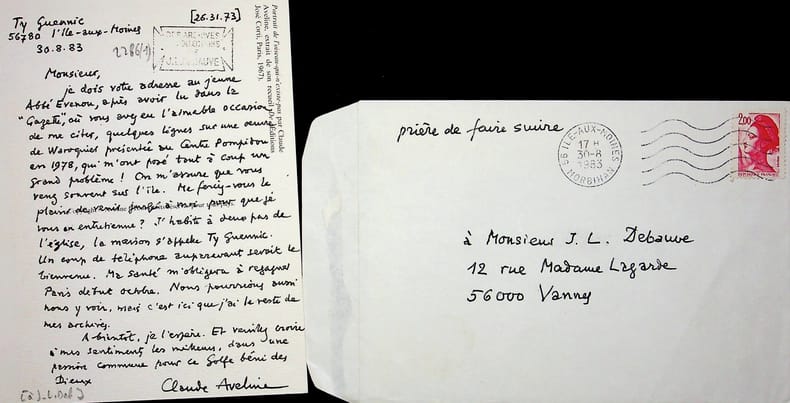 Ty Guennic
56780 l'Ile-aux-Moines
30.8.83
[26.31.73]
2786(1)
DES ARCHIVES
J.L. DEBAUVE
Portrait de l'oiseau-qui-n'existe-pas par Claude
Aveline, extrait de son recueil De (Éditions
José Corti, Paris, 1967).
Monsieur,
je dois votre adresse au jeune
Abbé Evenou, après avoir lu dans la
"Gazette", où vous avez eu l'aimable occasion
de me citer, quelques lignes sur une œuvre
de Waroquier présentée au Centre Pompidou
en 1978, qui m'ont posé tout à coup un
grand problème ! On m'assure que vous
venez souvent sur l'île. Me feriez-vous le
plaisir de venir jusqu'à moi pour que je
vous en entretienne ? J'habite à deux pas de
l'église, la maison s'appelle Ty Guennic.
Un coup de téléphone auparavant serait le
bienvenu. Ma santé m'obligera à regagner
Paris début octobre. Nous pourrions aussi
nous y voir, mais c'est ici que j'ai le reste de
mes archives.
A bientôt, je l'espère. Et veuillez croire
à mes sentiments les meilleurs, dans une
passion commune pour ce Golfe béni des
Dieux
Claude Aveline
[à J.L. Deb]
prière de faire suivre
56 ILE-AUX-MOINES
17 H
30-8
1983
MORBIHAN
2,00
à Monsieur J. L. Debauve
12 rue Madame Lagarde
56000 Vannes